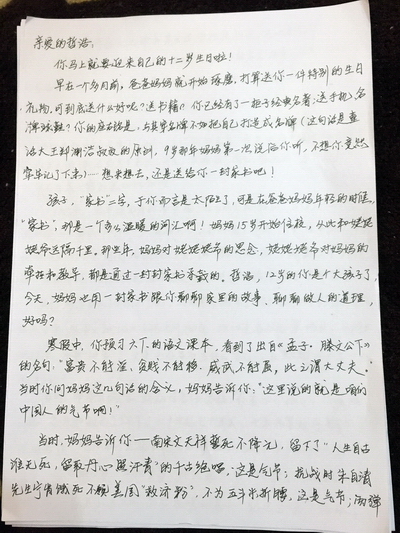 亲爱的哲浩：
你马上就要迎来自己的十二岁生日啦！
早在一个多月前，爸爸妈妈就开始琢磨，打算送你一件特别的生日
礼物，可到底送什么好呢？送书籍？你已经有了一柜子经典名著；送手机、名
牌球鞋？你的座右铭是：与其穿名牌不如把自己打造成名牌（这句话是童
话大王郑渊洁叔叔的原训，9岁那年妈妈第一次说给你听，不想你竟然
牢牢记了下来）…想来想去，还是送给你一封家书吧！
孩子，“家书”二字，于你而言是太陌生了，可是在爸爸妈妈年轻的时候，
“家书”，那是一个多么温暖的词汇啊！妈妈15岁开始住校，从此和姥姥
姥爷远隔千里。那些年，妈妈对姥姥姥爷的思念，姥姥姥爷对妈妈的
牵挂和教导，都是通过一封封家书承载的。哲浩，12岁的你是个大孩子了
今天，妈妈也用一封家书跟你聊聊家里的故事，聊聊做人的道理，
好吗？
寒假中，你预习六下的语文课本，看到了出自《孟子·滕文公下》
的名句：“富贵不能淫，贫贱不能移，威武不能屈，此之谓大丈夫。”
当时你问妈妈这几句话的含义，妈妈告诉你：“这里说的就是咱们
中国人的气节啊！”
当时，妈妈告诉你——南宋文天祥誓死不降元，留下了“人生自古
谁无死，留取丹心照汗青”的千古绝唱，这是气节；抗战时朱自清
先生宁肯饿死不领美国“救济粉”，不为五斗米折腰，这是气节；